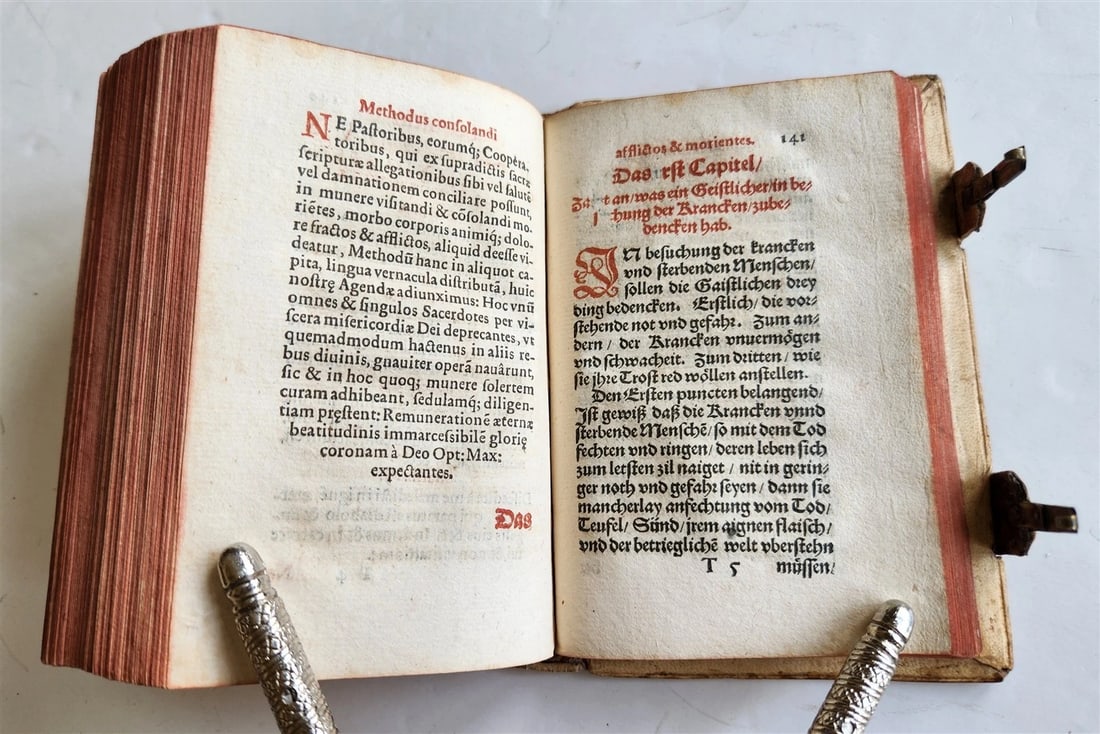 Methodus conſolandi
NE Paſtoribus, eorumq́; Coopera-
toribus, qui ex ſupradictis ſacræ
ſcripturæ allegationibus ſibi vel ſalutē
vel damnationem conciliare poſſunt,
in munere viſitandi & cōſolandi mo-
riētes, morbo corporis animiq́; dolo-
re fractos & afflictos, aliquid deeſſe vi-
deatur, Methodū hanc in aliquot ca-
pita, lingua vernacula diſtributā, huic
noſtrę Agendæ adiunximus: Hoc vnū
omnes & ſingulos Sacerdotes per vi-
ſcera miſericordiæ Dei deprecantes, vt
quemadmodum hactenus in aliis re-
bus diuinis, gnauiter operā nauârunt,
ſic & in hoc quoq; munere ſolertem
curam adhibeant, ſedulamq́; diligen-
tiam pręſtent: Remunerationē æternæ
beatitudinis immarceſſibilē glorię
coronam à Deo Opt: Max:
expectantes.
Das
afflictos & morientes. 141
Das rſt Capitel/
an/was ein Geiſtlicher/in be-
hung der Krancken/zube-
dencken hab.
IN beſuchung der krancken
vnd ſterbenden Menſchen/
ſollen die Gaiſtlichen drey
ding bedencken. Erſtlich/ die vor-
ſtehende not vnd gefahr. Zum an-
dern/ der Krancken vnuermögen
vnd ſchwacheit. Zum dritten/ wie
ſie jhre Troſt red wöllen anſtellen.
Den Erſten puncten belangend/
Iſt gewiß daß die Krancken vnnd
ſterbende Menſchē/ ſo mit dem Tod
fechten vnd ringen/ deren leben ſich
zum letſten zil naiget/ nit in gerin-
ger noth vnd gefahr ſeyen/ dann ſie
mancherlay anfechtung vom Tod/
Teufel/ Sünd/ jrem aignen flaiſch/
vnd der betrieglichē welt vberſtehn
T 5 müſſen/